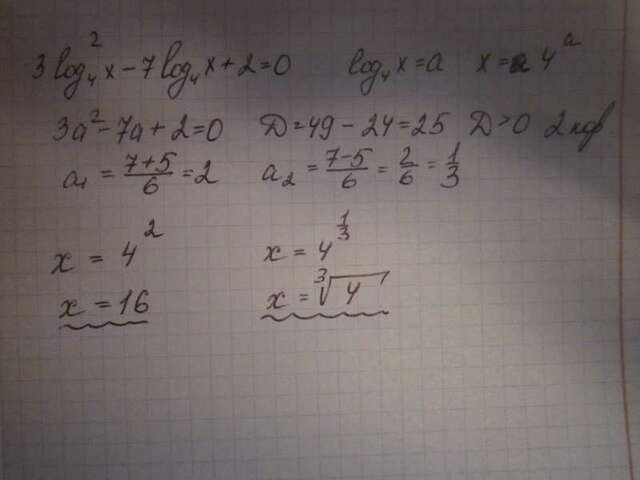 3 log₄² x - 7 log₄ x + 2 = 0 log₄ x = a x = 4^a
3a² - 7a + 2 = 0 D = 49 - 24 = 25 D > 0 2
a₁ = (7+5)/6 = 2 a₂ = (7-5)/6 = 2/6 = 1/3
x = 4² x = 4^(1/3)
x = 16 x = ∛4